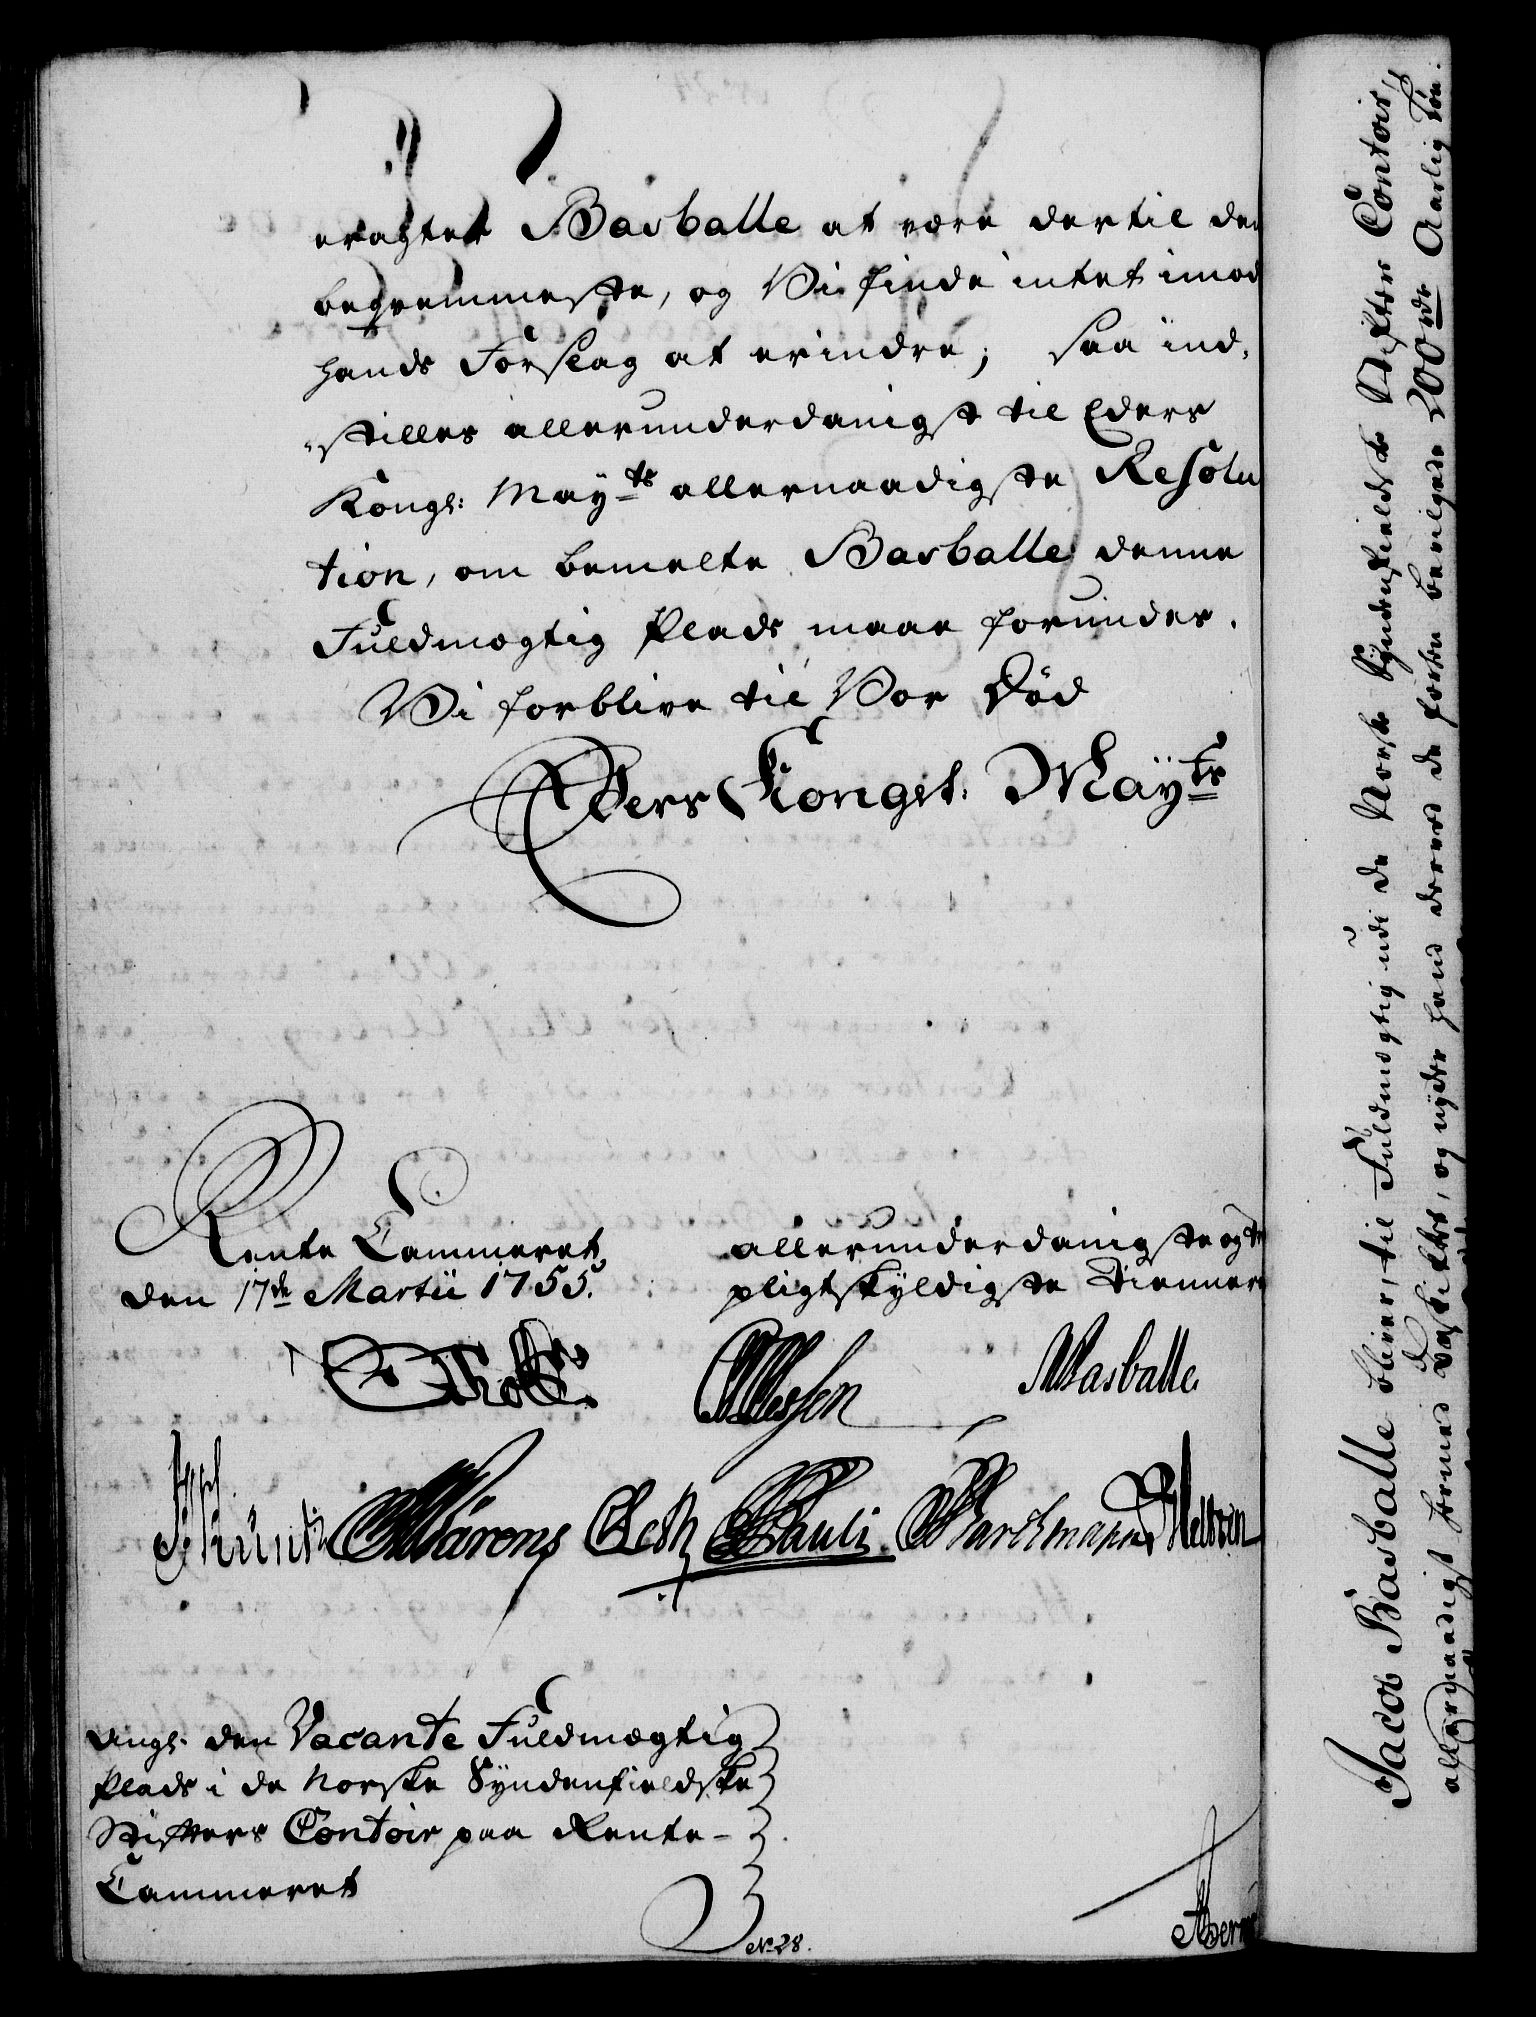 eragter Basballe at være dertil den
beqvemmeste, og Vi finde intet imod
hands Forslag at erindre; saa ind-
stilles allerunderdanigst til Eders
Kongl: Mayts allernaadigste Resolu
tion, om bemelte Basballe denne
Fuldmægtig Plads maae forundes.
Vi forblive til Vor Død
Eders Kongel: Mayts
Rente Cammeret
den 17de Martii 1755.
allerunderdanigste og
pligtskyldigste Tiennere
Basballe
Pauli
Angl: den Vacante Fuldmægtig
Plads i de Norske Syndenfieldske
Stifters Contoir paa Rente-
Cammeret
No 28.
Jacob Basballe bliver til Fuldmægtig udi de Norske Syndenfieldske Stifters Contoir,
allernaadigst hermed beskikket, og nyder hand derved de forhen bevilgede 200 rdr Aarlig Løn.